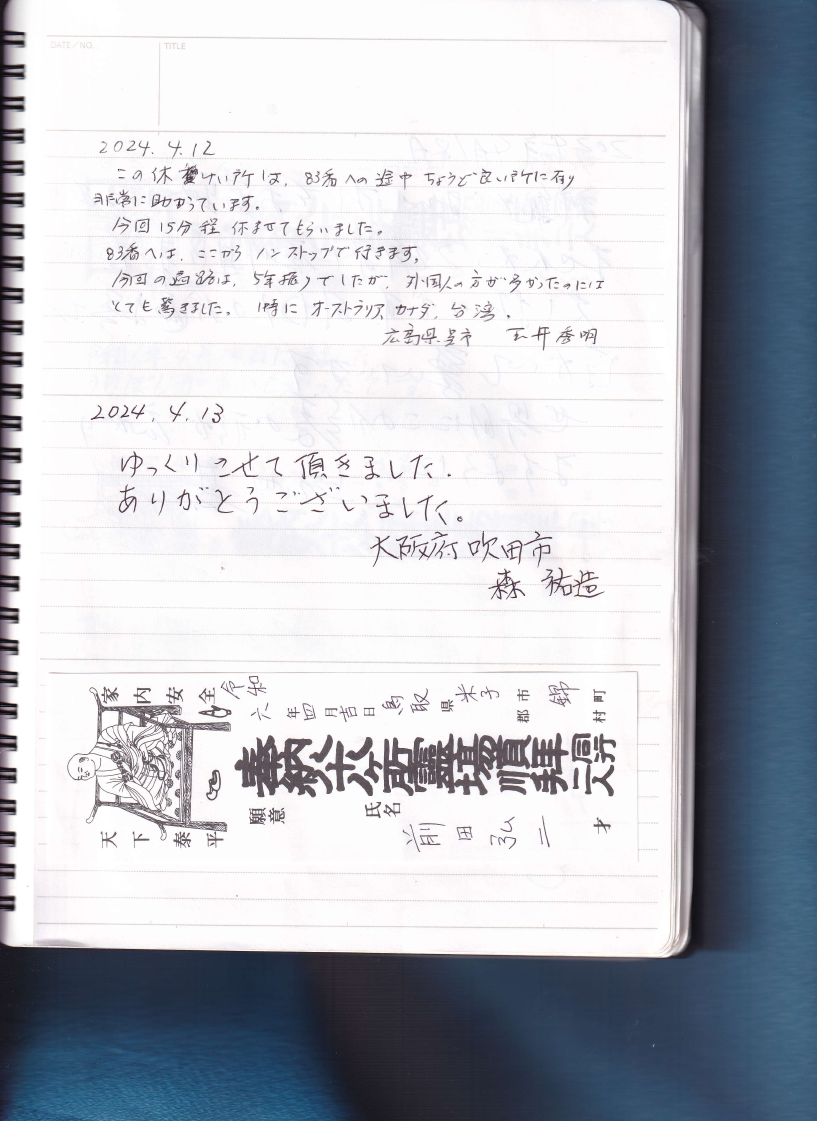 DATE/NO.
TITLE
2024.4.12
この休けい所は、83番への途中ちょうど良い所に有り
非常に助かっています。
今回15分程休ませてもらいました。
83番へは、ここからノンストップで行きます。
今回の遍路は、5年振りでしたが、外国人の方が多かったのには
とても驚きました。特にオーストラリア、カナダ、台湾。
広島県呉市 玉井秀明
2024.4.13
ゆっくりさせて頂きました.
ありがとうございました。
大阪府吹田市
森 祐造
家内安全
天下泰平
令和六年四月吉日
鳥取県米子市郡錦町村
奉納八十八ヶ所霊場順拝同行二人
願意
氏名 前田弘二 才